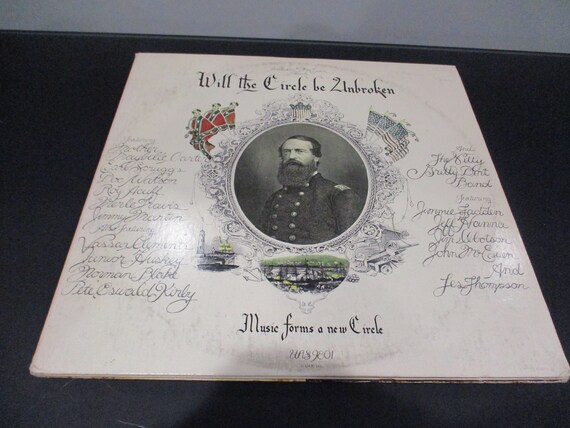 Will the Circle be Unbroken
Featuring
Mother
Maybelle Carter
Earl Scruggs
Doc Watson
Roy Acuff
Merle Travis
Jimmy Martin
Featuring
Vassar Clements
Junior Huskey
Norman Blake
Pete Oswald Kirby
And
The Nitty
Gritty Dirt
Band
Featuring
Jimmie Fadden
Jeff Hanna
Jim Ibbotson
John McEuen
And
Les Thompson
Music forms a new Circle
UAS 9801